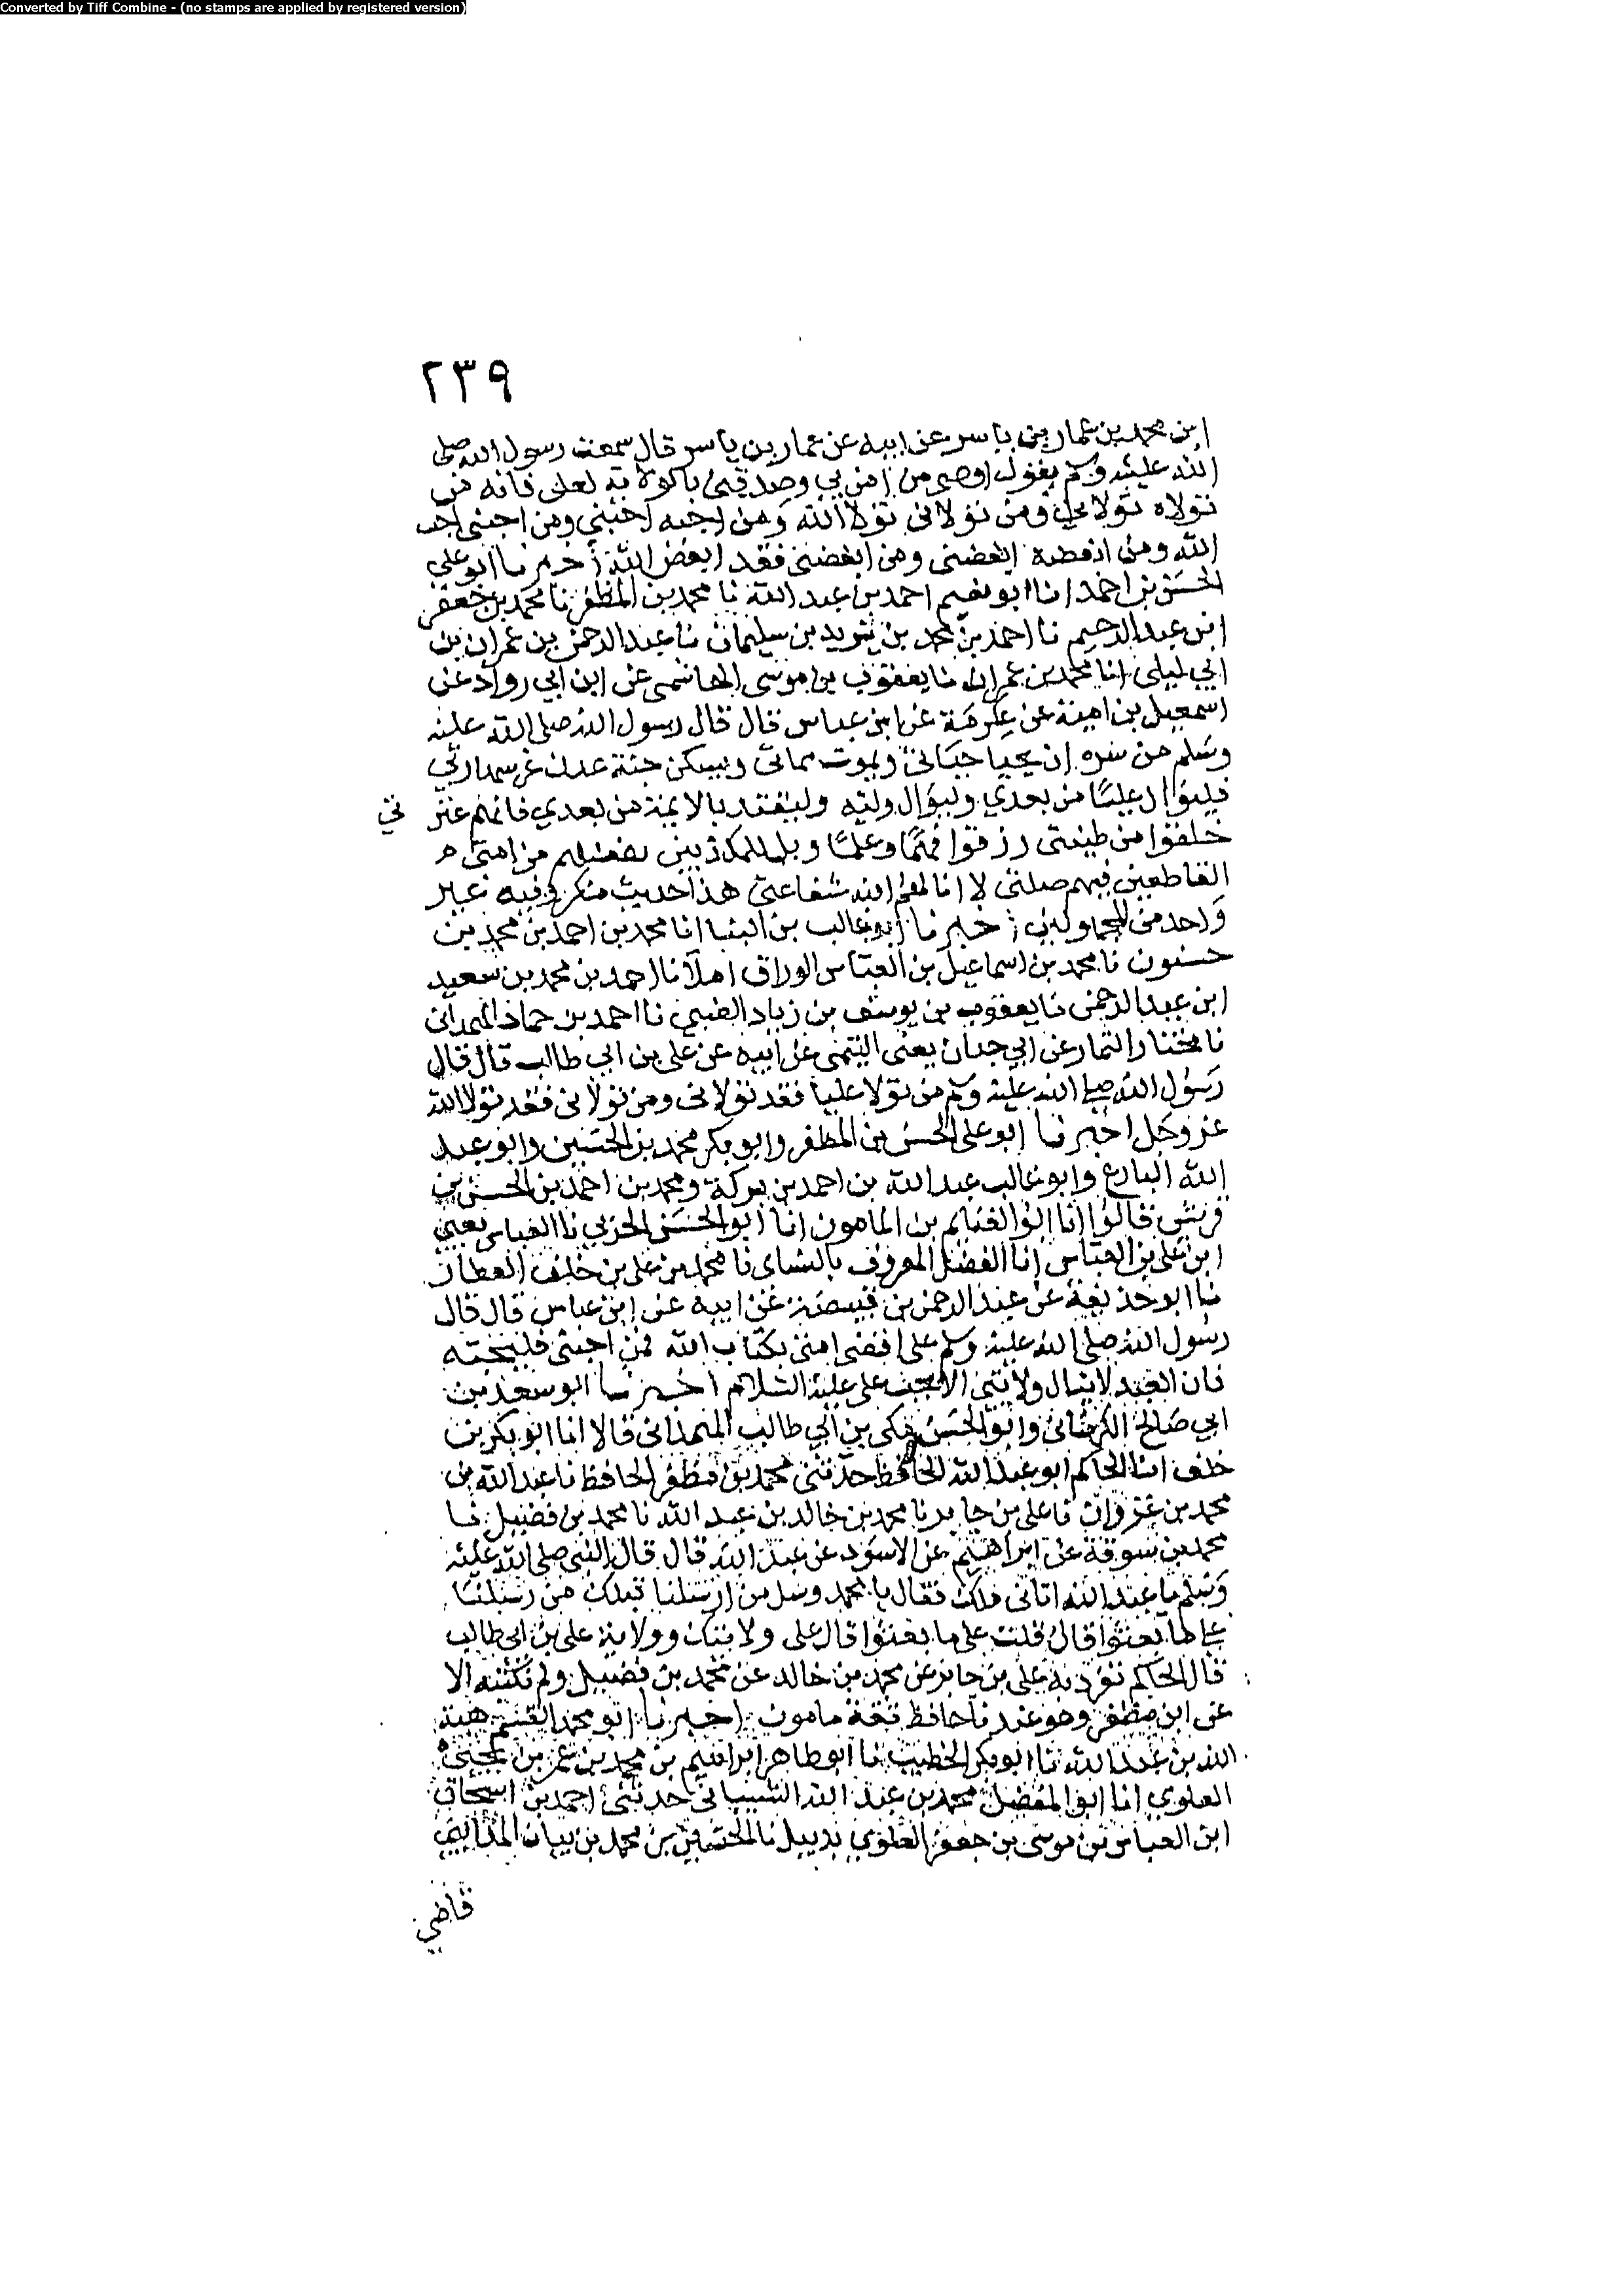 Converted by Tiff Combine - (no stamps are applied by registered version)
٢٣٩
ابن محمد بن عمار بن ياسر عن ابيه عن عمار بن ياسر قال سمعت رسول الله صلى
الله عليه وسلم يقول اوصي من امن بي وصدقني بالولاية لعلي فانه من
تولاه تولاني ومن تولاني تولا الله ومن احبه احبني ومن احبني احب
الله ومن ابغضه ابغضني ومن ابغضني فقد ابغض الله اخبرنا ابو علي
الحسن بن احمد انا ابو نعيم احمد بن عبد الله نا محمد بن المظفر نا محمد بن جعفر
ابن عبد الرحيم نا احمد بن محمد بن يزيد بن سليمان نا عبد الرحمن بن عمران بن
ابي ليلى انا محمد بن عمران نا يعقوب بن موسى الهاشمي عن ابن ابي رواد عن
اسمعيل بن امية عن عكرمة عن ابن عباس قال قال رسول الله صلى الله عليه
وسلم من سره ان يحيا حياتي ويموت مماتي ويسكن جنة عدن غرسها ربي
فليوال عليا من بعدي وليوال وليه وليقتد بالايمة من بعدي فانهم عتر تي
خلقوا من طينتي رزقوا فهما وعلما ويل للمكذبين بفضلهم من امتي
القاطعين فيهم صلتي لا انالهم الله شفاعتي هذا حديث منكر وفيه غير
واحد من المجهولين اخبرنا ابو غالب بن البنا انا محمد بن احمد بن محمد بن
حسنون نا محمد بن اسماعيل بن العباس الوراق املا نا احمد بن محمد بن سعيد
ابن عبد الرحمن نا يعقوب بن يوسف بن زياد الضبي نا احمد بن حماد الهمداني
نا مختار التمار عن ابي حيان يعني التيمي عن ابيه عن علي بن ابي طالب قال قال
رسول الله صلى الله عليه وسلم من تولا عليا فقد تولاني ومن تولاني فقد تولا الله
عز وجل اخبرنا ابو علي الحسن بن المظفر وابو بكر محمد بن الحسين وابو عبد
الله البارع وابو غالب عبد الله بن احمد بن بركة ومحمد بن احمد بن الحسن بن
قريش قالوا انا ابو الغنايم بن المامون انا ابو الحسن الحربي نا العباس يعني
ابن علي بن العباس انا الفضل المعروف بالنساي نا محمد بن علي بن خلف العطار
نا ابو حذيفة عن عبد الرحمن بن قبيصة عن ابيه عن ابن عباس قال قال
رسول الله صلى الله عليه وسلم علي اقضى امتي بكتاب الله فمن احبني فليحبه
فان العبد لا ينال ولايتي الا بحب علي عليه السلام اخبرنا ابو سعد بن
ابي صالح الكرماني وابو الحسن مكي بن ابي طالب الهمذاني قالا انا ابو بكر بن
خلف انا الحاكم ابو عبد الله الحافظ حدثني محمد بن مظفر الحافظ نا عبد الله بن
محمد بن غزوان نا علي بن جابر نا محمد بن خالد بن عبد الله نا محمد بن فضيل نا
محمد بن سوقة عن ابراهيم عن الاسود عن عبد الله قال قال النبي صلى الله عليه
وسلم يا عبد الله اتاني ملك فقال يا محمد وسل من ارسلنا قبلك من رسلنا
على ما بعثوا قال قلت على ما بعثوا قال على ولايتك وولاية علي بن ابي طالب
قال الحاكم تفرد به علي بن جابر عن محمد بن خالد عن محمد بن فضيل ولم نكتبه الا
عن ابن مظفر وهو عندنا حافظ ثقة مامون اخبرنا ابو محمد القسم هبة
الله بن عبد الله نا ابو بكر الخطيب نا ابو طاهر ابراهيم بن محمد بن عمر بن يحيى
العلوي انا ابو المفضل محمد بن عبد الله الشيباني حدثني احمد بن اسحاق
ابن العباس بن موسى بن جعفر العلوي بدبيل نا الحسين بن محمد بن بيان المدايني
قاضي